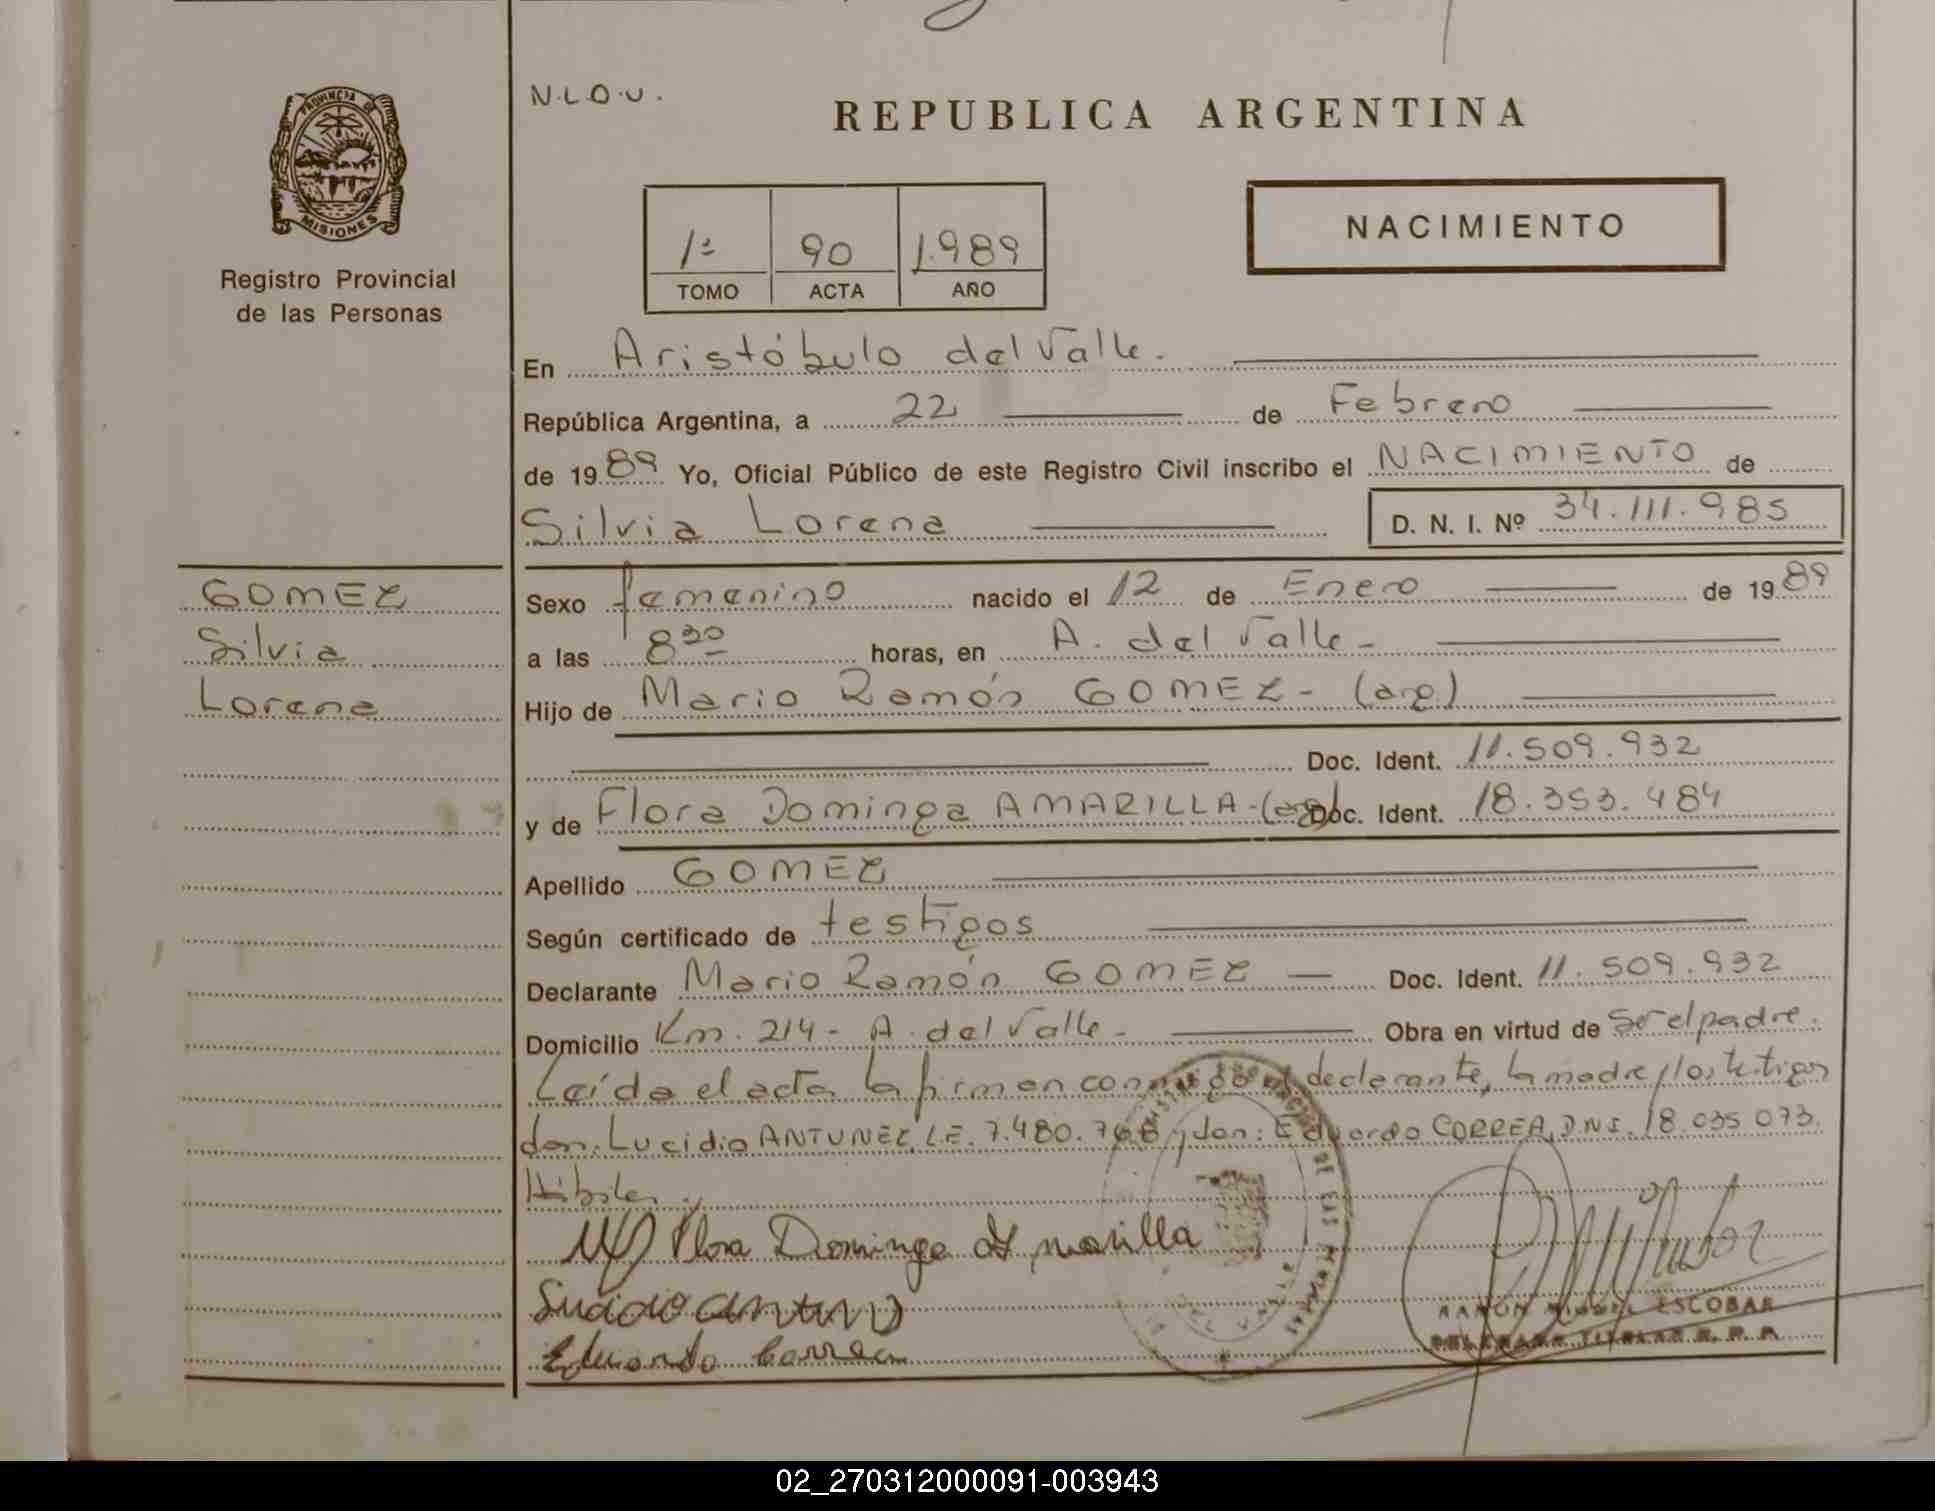 N.L.O.U.
REPUBLICA ARGENTINA
PROVINCIA DE
MISIONES
Registro Provincial
de las Personas
NACIMIENTO
1ª 90 1.989
TOMO ACTA AÑO
En Aristóbulo del Valle.
República Argentina, a 22 de Febrero
de 1989 Yo, Oficial Público de este Registro Civil inscribo el NACIMIENTO de
Silvia Lorena D. N. I. Nº 34.111.985
GOMEZ
Silvia
Lorena
Sexo femenino nacido el 12 de Enero de 1989
a las 8 30 horas, en A. del Valle -
Hijo de Mario Ramón GOMEZ - (arg.)
Doc. Ident. 11.509.932
y de Flora Dominga AMARILLA - (arg) Doc. Ident. 18.353.484
Apellido GOMEZ
Según certificado de testigos
Declarante Mario Ramón GOMEZ — Doc. Ident. 11.509.932
Domicilio Km. 214 - A. del Valle - Obra en virtud de Ser el padre.
Leída el acta la firman conmigo el declarante, la madre y los testigos
don: Lucidio ANTUNEZ, L.E. 7.480.766 y don: Eduardo CORREA, D.N.I. 18.035.073.
Hábiles
Flora Dominga Amarilla
Lucidio Antunes
Eduardo Correa
RAMON MIGUEL ESCOBAR
DELEGADO TITULAR R. P. P.
02_270312000091-003943